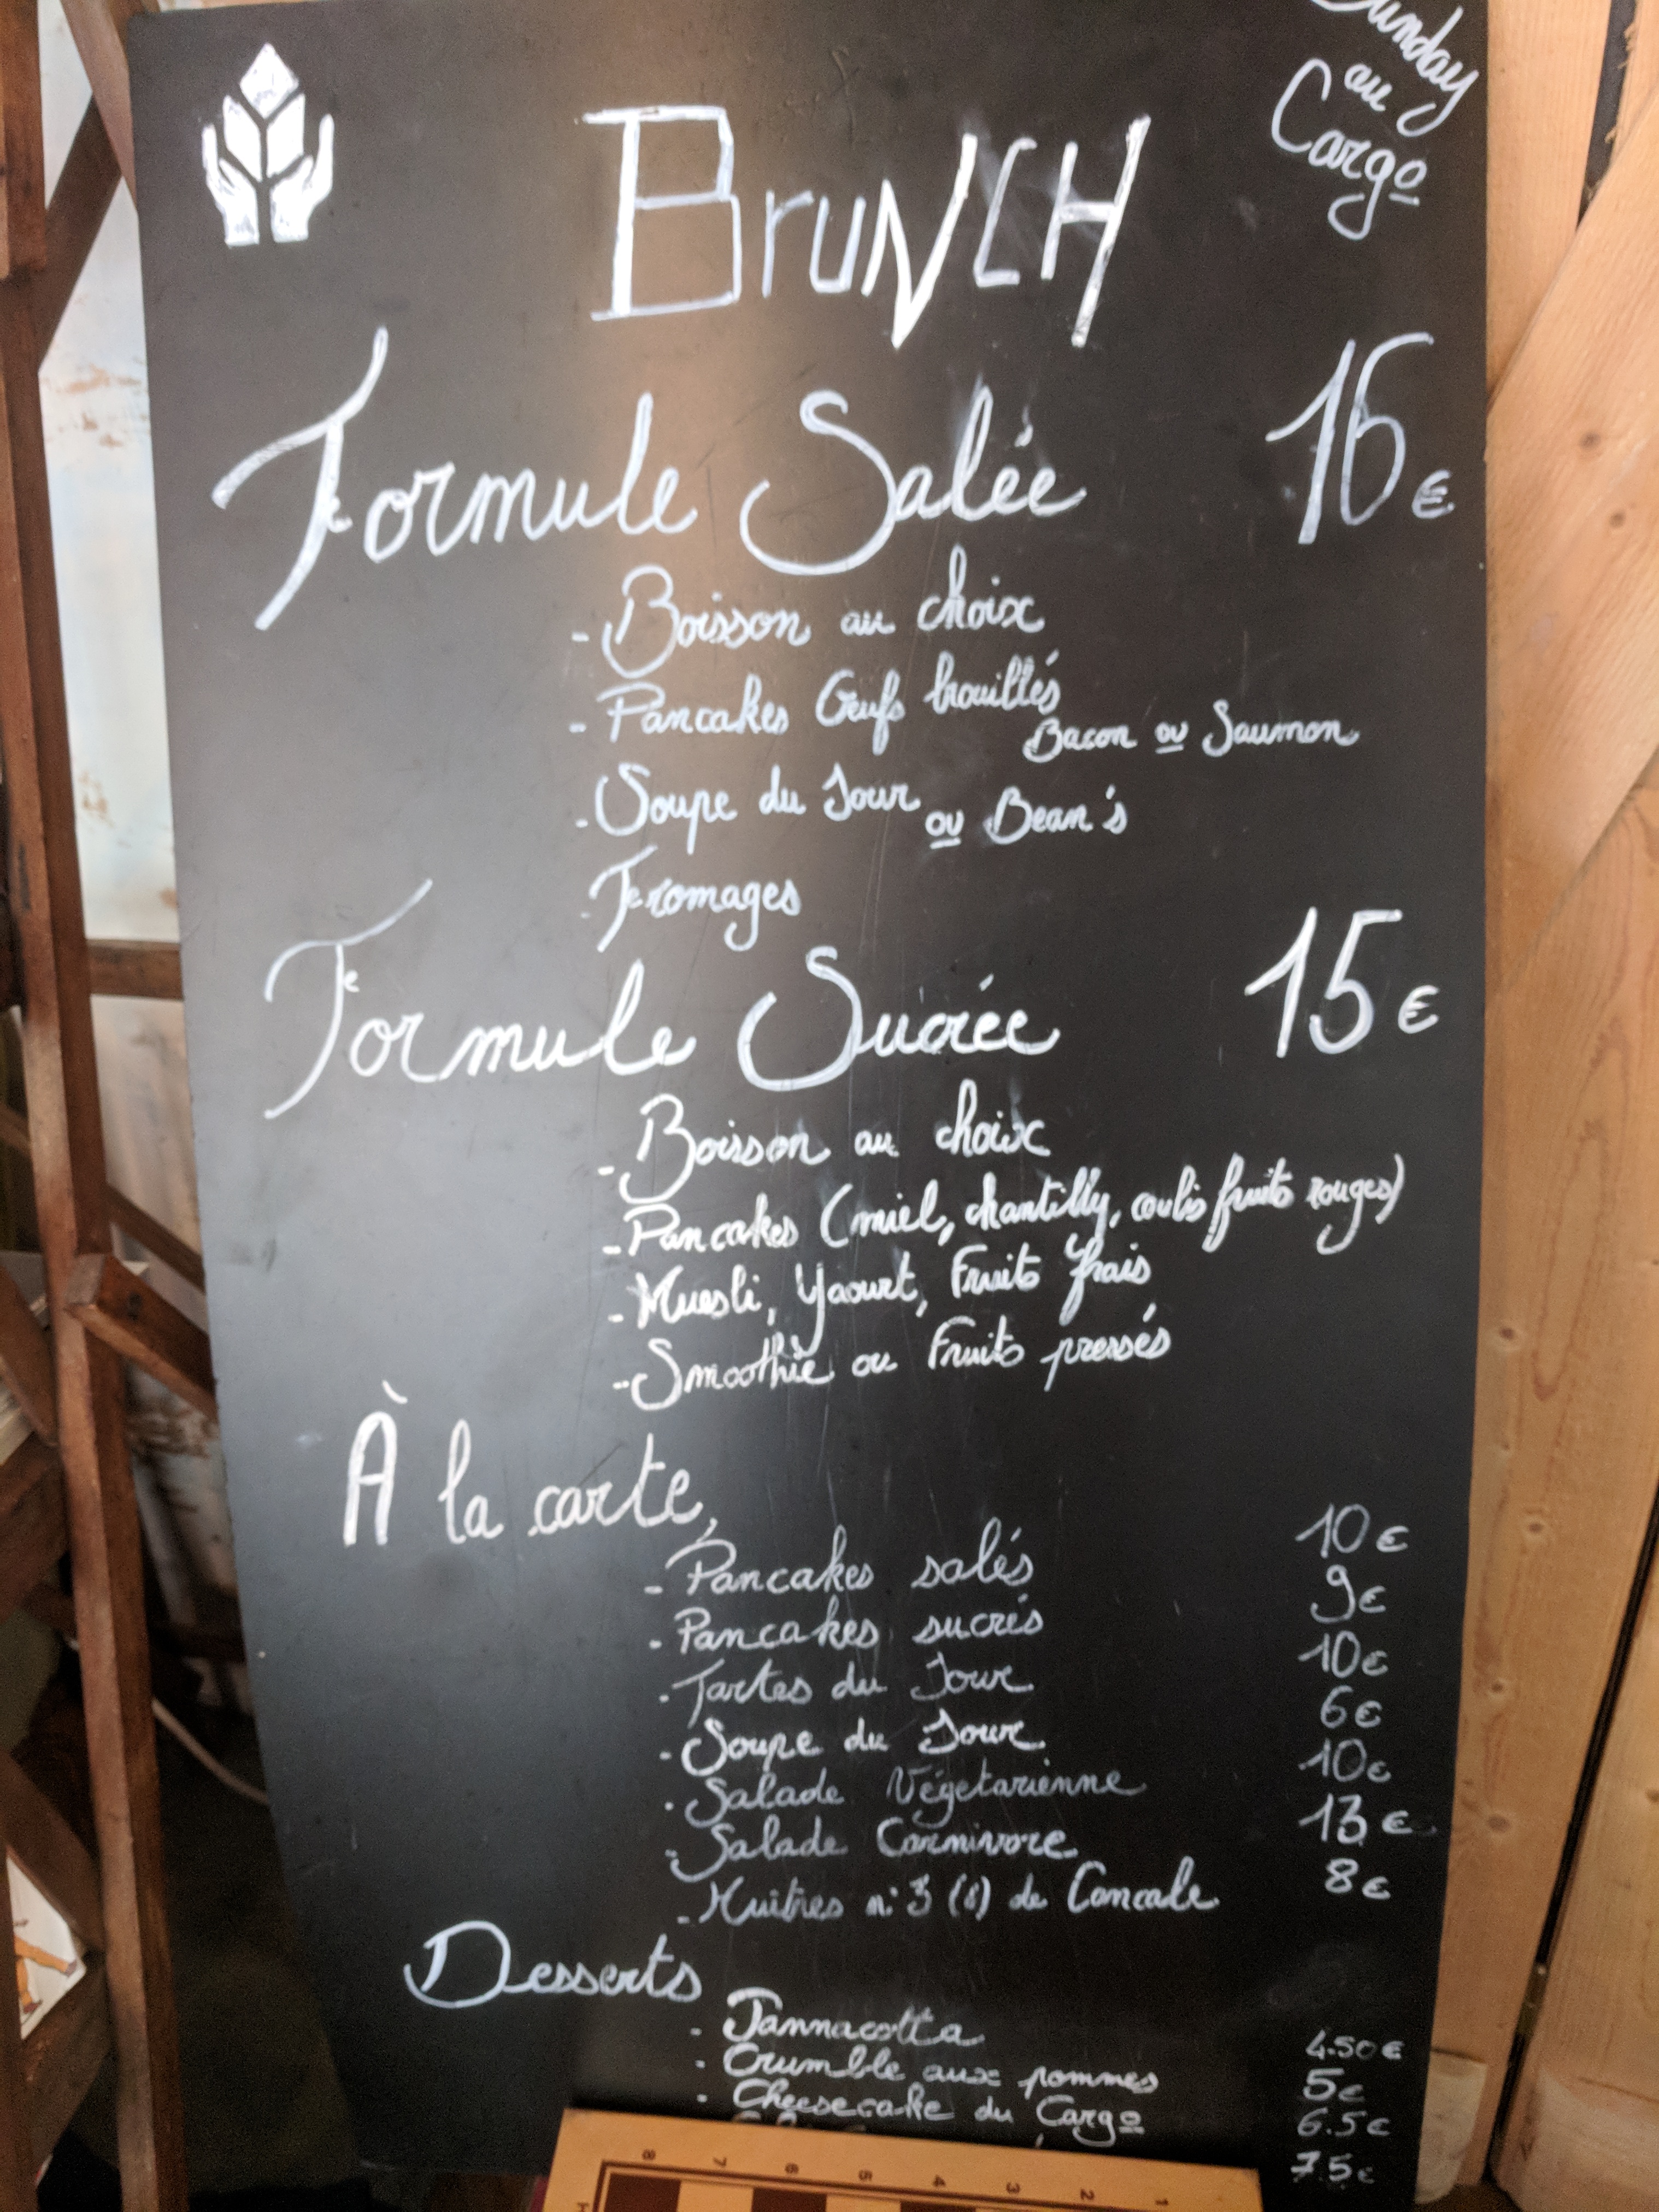 Sunday
au
Cargo
BruNCH
Formule Salée 16€
- Boisson au choix
- Pancakes Oeufs brouillés
Bacon ou Saumon
- Soupe du Jour ou Bean's
- Fromages
Formule Sucrée 15€
- Boisson au choix
- Pancakes (miel, chantilly, coulis fruits rouges)
- Muesli, Yaourt, Fruits frais
- Smoothie ou Fruits pressés
À la carte,
- Pancakes salés 10€
- Pancakes sucrés 9€
- Tartes du Jour 10€
- Soupe du Jour 6€
- Salade Végetarienne 10€
- Salade Carnivore 13€
- Huîtres n: 3 (6) de Cancale 8€
Desserts
- Pannacotta 4.50€
- Crumble aux pommes 5€
- Cheesecake du Cargo 6.5€
7.5€
8 7 6 5 4 3 2 1
H